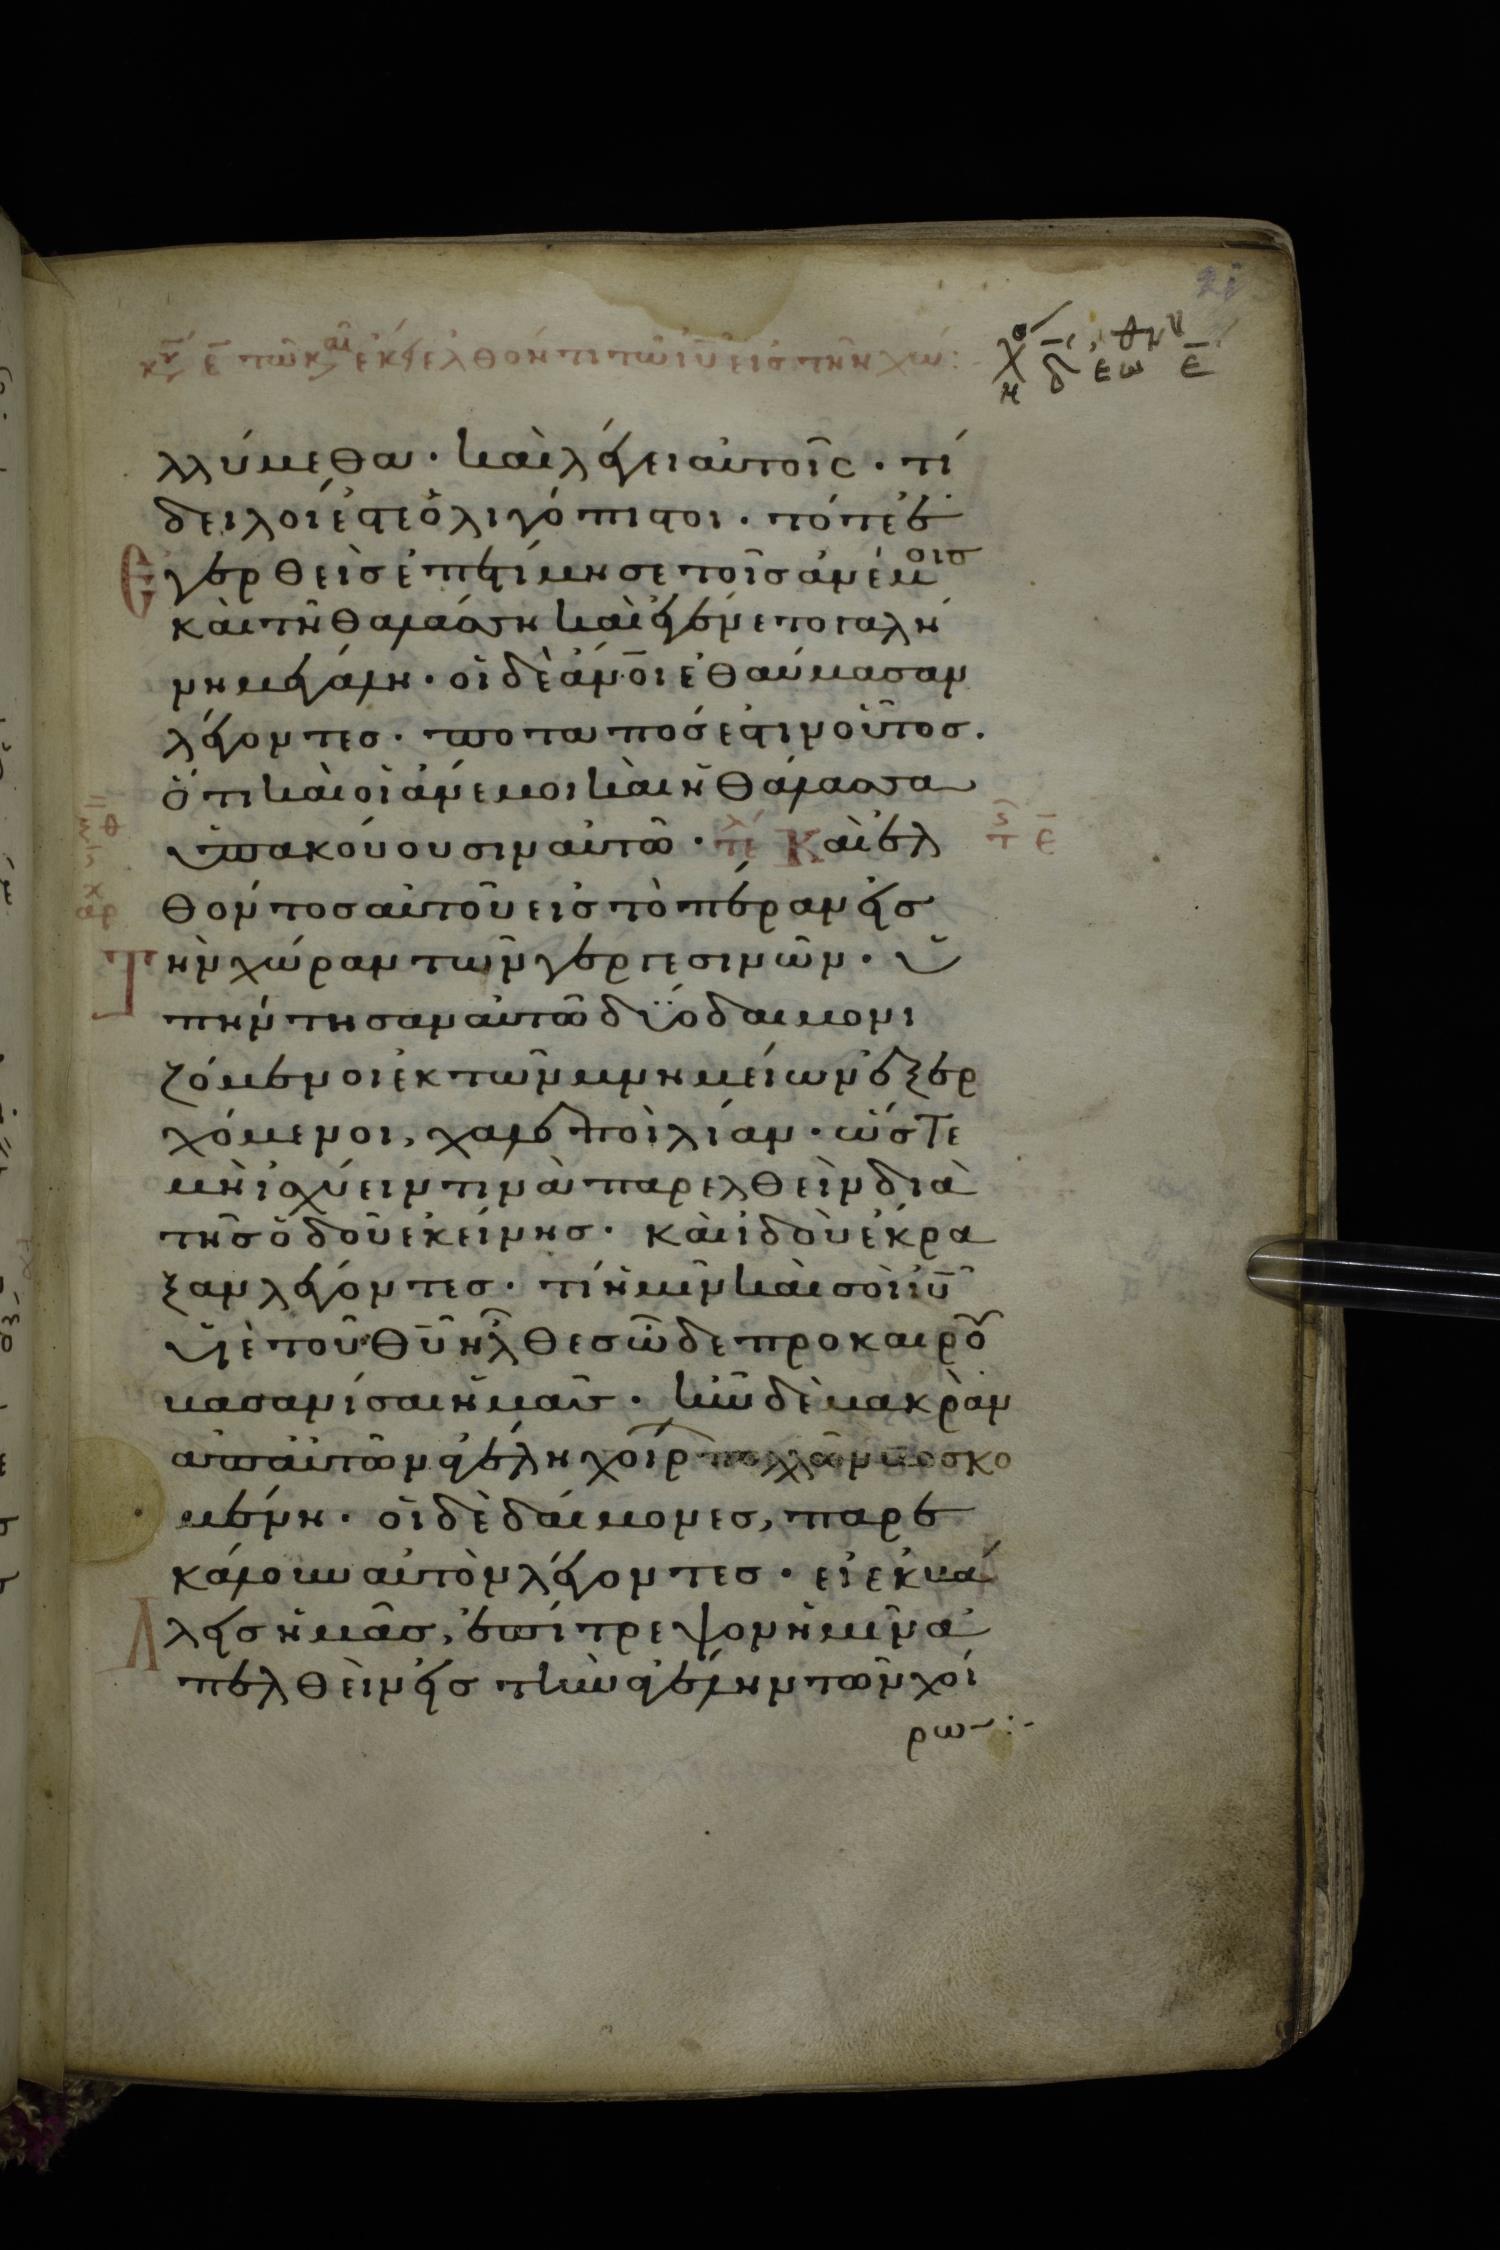 κυ ε τῶ καιρῶ ἐκείνω ἐλθόντι τῶ ιυ εἰς τὴν χώ:
λλύμεθα · καὶ λέγει αὐτοῖς · τί
δειλοί ἐστε ὀλιγόπιστοι · τότε ἐ
γερθεὶς ἐπετίμησε τοῖς ἀνέμοις
καὶ τῆ θαλάσση καὶ ἐγένετο γαλή
νη μεγάλη · οἱ δὲ ἄνοι ἐθαύμασαν
λέγοντες · ποταπός ἐστιν οὗτος ·
ὅτι καὶ οἱ ἄνεμοι καὶ ἡ θάλασσα
ὑπακούουσιν αὐτῶ · τε Καὶ ἐλ
θόντος αὐτοῦ εἰς τὸ πέραν εἰς
τὴν χώραν τῶν γεργεσινῶν · ὑ
πήντησαν αὐτῶ δύο δαιμονι
ζόμενοι ἐκ τῶν μνημείων ἐξερ
χόμενοι, χαλεποὶ λίαν · ὥστε
μὴ ἰσχύειν τινὰ παρελθεῖν διὰ
τῆς ὁδοῦ ἐκείνης · καὶ ἰδοὺ ἔκρα
ξαν λέγοντες · τί ἡμῖν καὶ σοὶ ιυ
υἱὲ τοῦ θυ ἦλθες ὧδε προ καιροῦ
βασανίσαι ἡμᾶς · ἦν δὲ μακρὰν
ἀπ αὐτῶν ἀγέλη χοίρων πολλῶν βοσκο
μένη · οἱ δὲ δαίμονες, παρε
κάλουν αὐτὸν λέγοντες · εἰ ἐκβά
λεις ἡμᾶς, ἐπίτρεψον ἡμῖν ἀ
πελθεῖν εἰς τὴν ἀγέλην τῶν χοί
ρων :